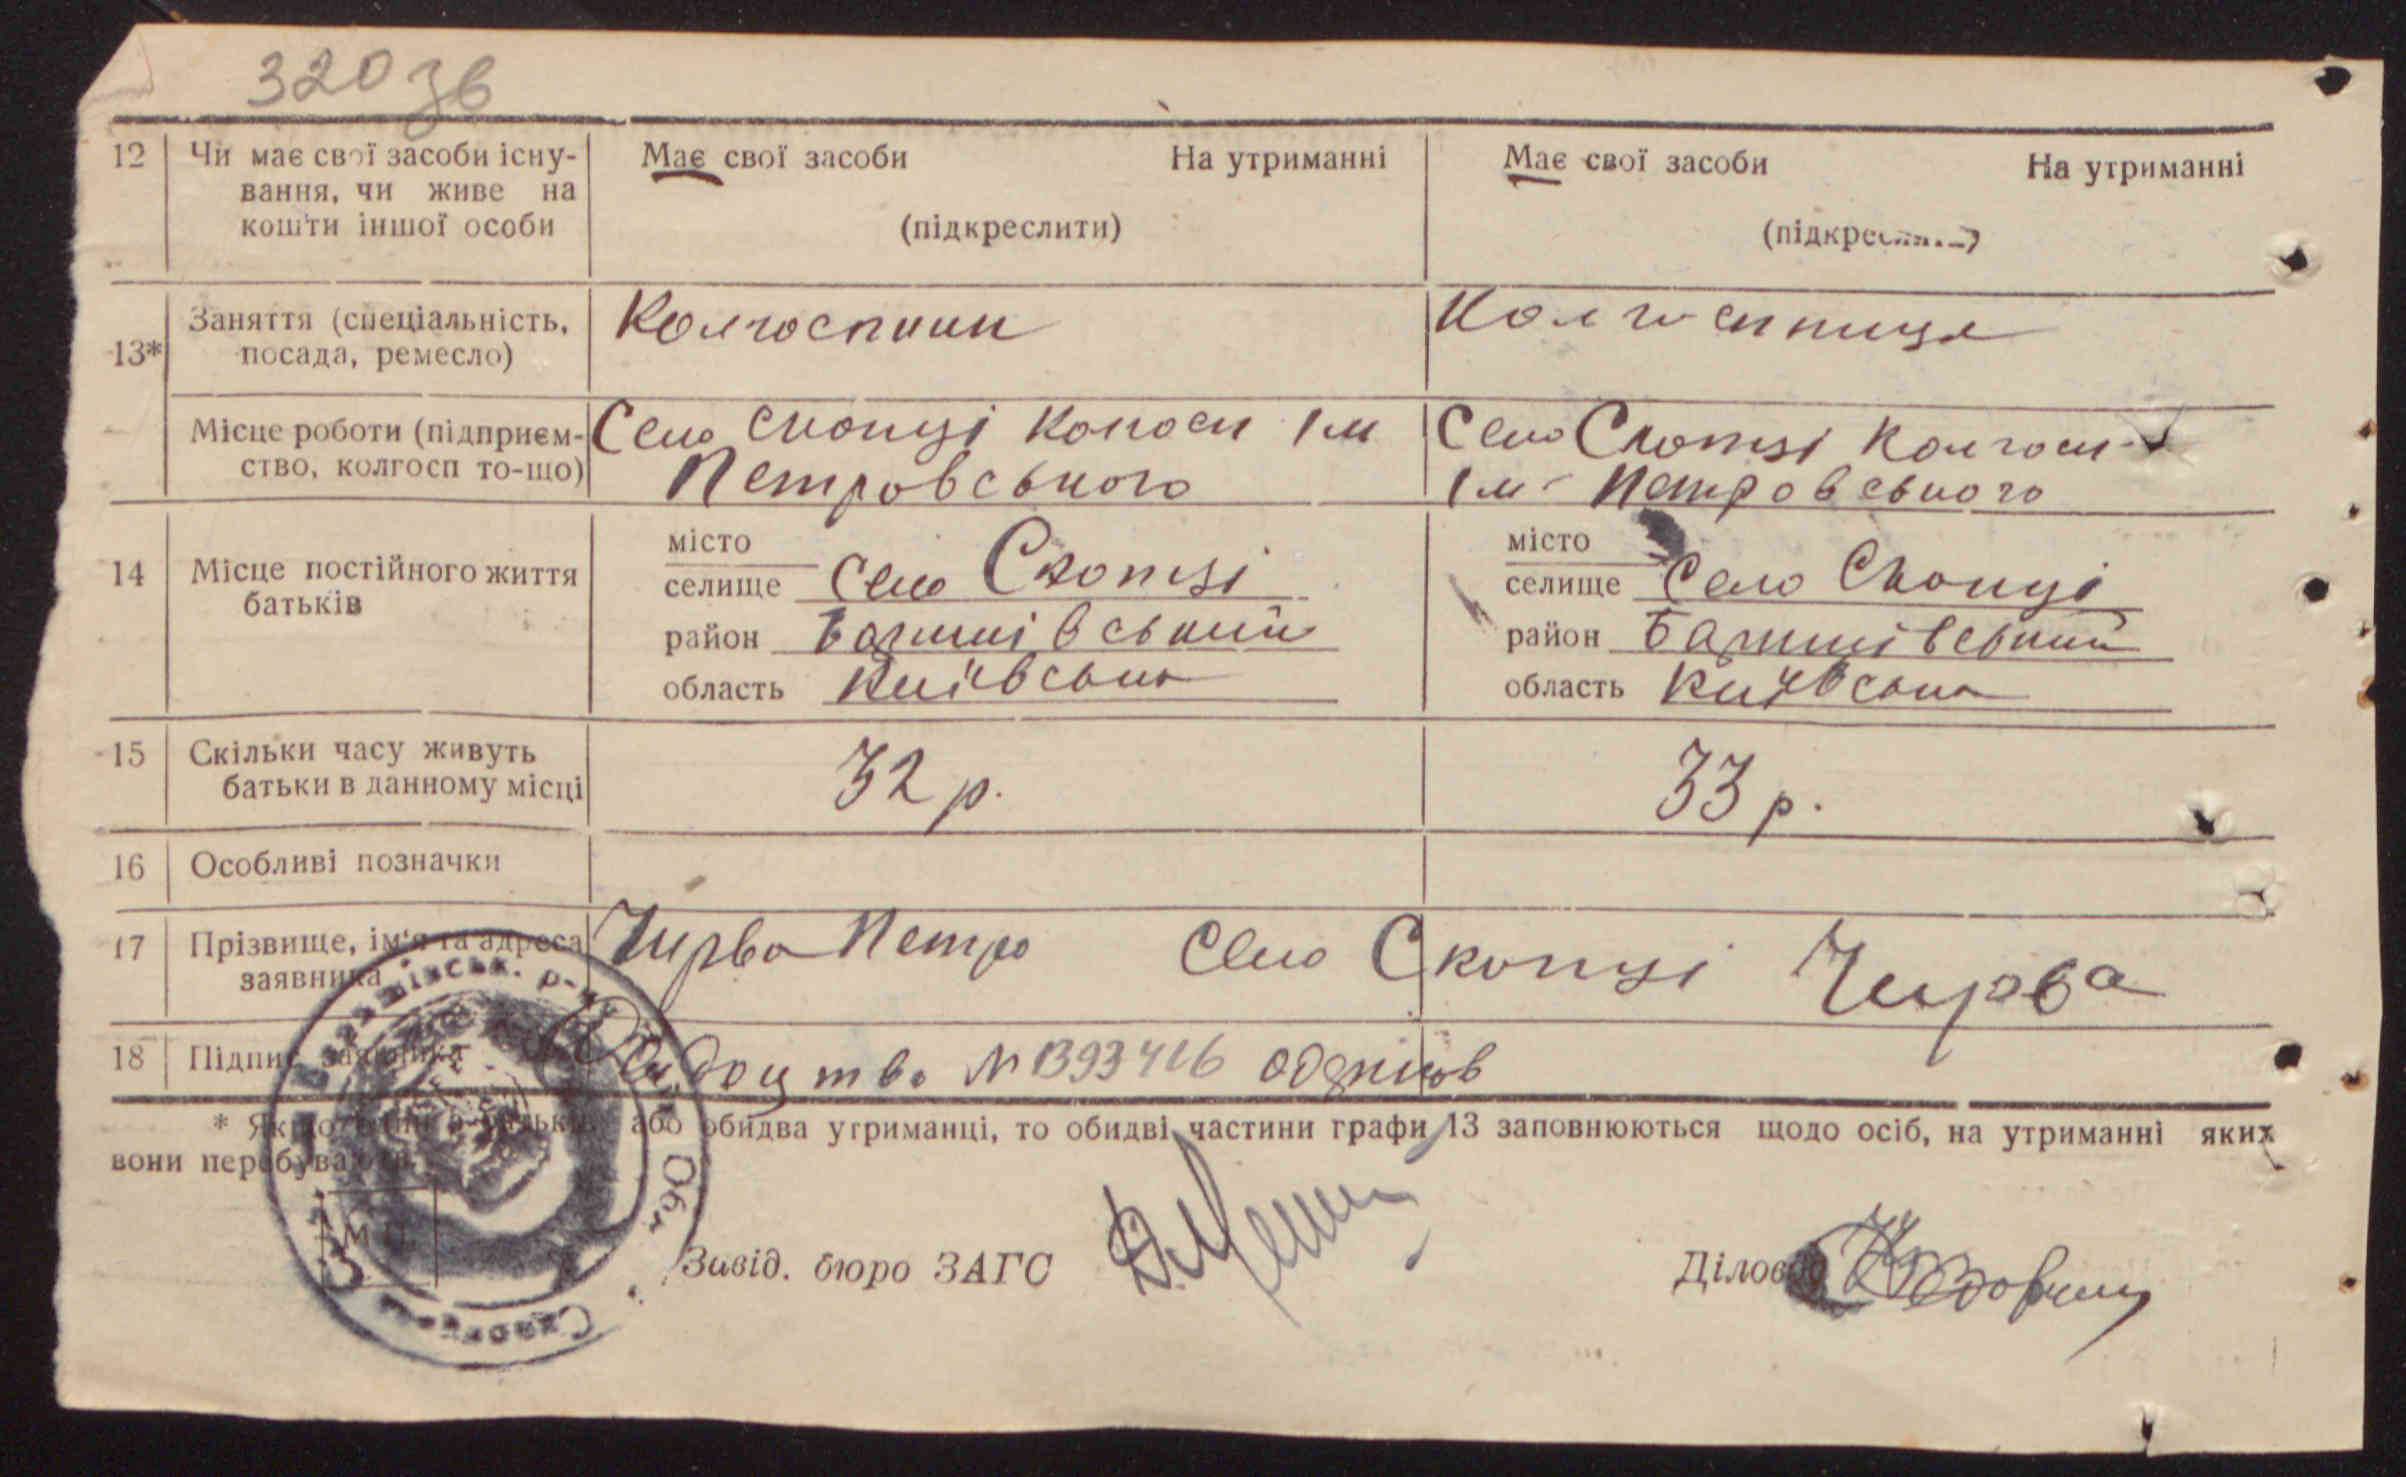 320 зв
12 Чи має свої засоби існу- Має свої засоби На утриманні Має свої засоби На утриманні
вання, чи живе на
кошти іншої особи (підкреслити) (підкреслити)
13* Заняття (спеціальність, Колгоспник Колгоспниця
посада, ремесло)
Місце роботи (підприєм- Село Скопці Колгосп Ім Село Скопці Колгосп
ство, колгосп то-що) Петровського Ім Петровського
місто місто
14 Місце постійного життя селище Село Скопці селище Село Скопці
батьків район Баришівський район Баришівський
область Київська область Київська
15 Скільки часу живуть 32 р. 33 р.
батьки в данному місці
16 Особливі позначки
17 Прізвище, ім'я та адреса Чирва Петро Село Скопці Чирва
заявника
18 Підпис заявника Свидоцтво № 1393416 одержав
* Якщо один з батьків або обидва утриманці, то обидві частини графи 13 заповнюються щодо осіб, на утриманні яких
вони перебувають.
М П
Завід. бюро ЗАГС Діловод